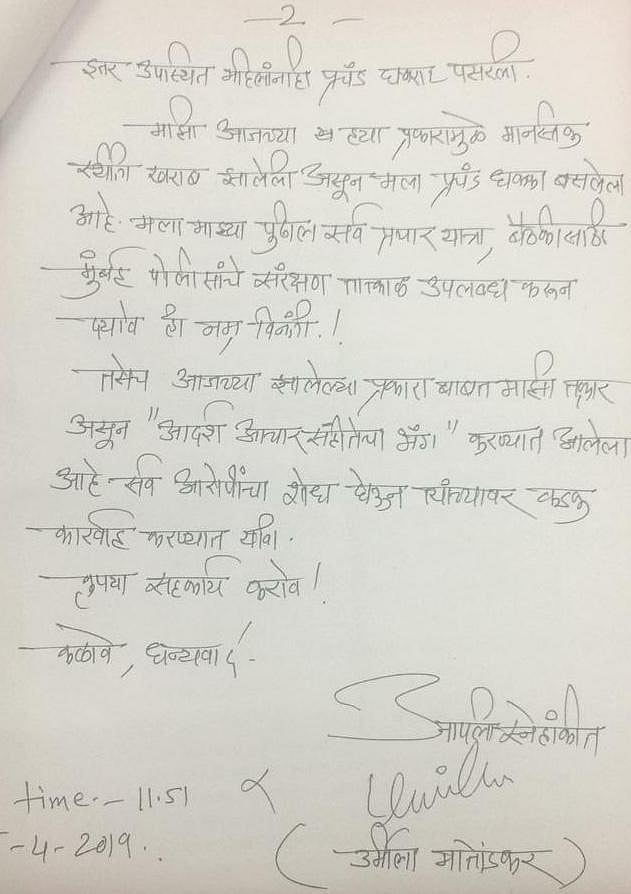 - 2 -
इतर उपस्थित महिलांनाही प्रचंड घबराट पसरली.
माझी आजच्या ह्या प्रकारामुळे मानसिक
स्थीती खराब झालेली असून मला प्रचंड धक्का बसलेला
आहे. मला माझ्या पुढील सर्व प्रचार यात्रा, बैठकीसाठी
मुंबई पोलीसांचे संरक्षण तात्काळ उपलब्ध करून
द्यावे ही नम्र विनंती.!
तसेच आजच्या झालेल्या प्रकारा बाबत माझी तक्रार
असून "आदर्श आचार संहीतेचा भंग" करण्यात आलेला
आहे. सर्व आरोपींचा शोध घेऊन त्यांच्यावर कडक
कारवाई करण्यात यावी.
कृपया सहकार्य करावे!
कळावे, धन्यवाद!
आपली स्नेहांकीत
time.- 11.51
-4-2019.
(उर्मीला मातोंडकर)